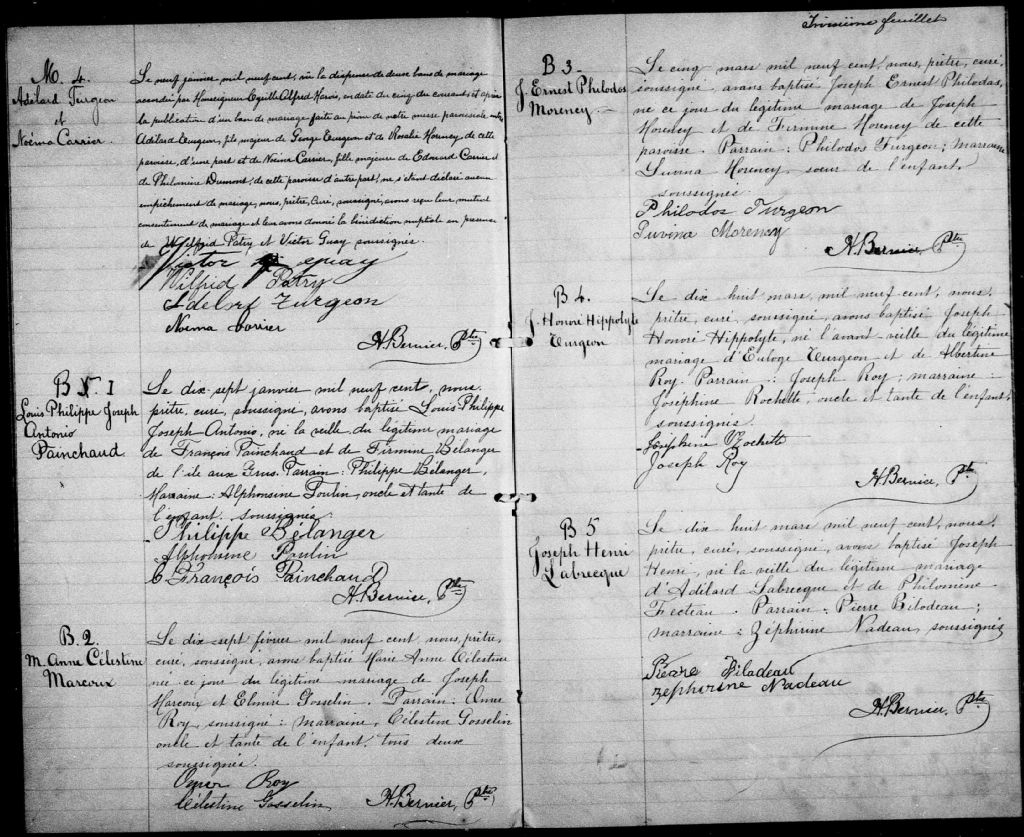 M. 4.
Adélard Turgeon
et
Noéma Carrier.
Le neuf janvier mil neuf cent, vu la dispense de deux bans de mariage
accordée par Monseigneur Cyrille Alfred Marois, en date du cinq du courant, et après
la publication d'un ban de mariage faite au prône de notre messe paroissiale entre
Adélard Turgeon, fils majeur de George Turgeon et de Rosalie Morency, de cette
paroisse, d'une part et de Noema Carrier, fille majeure de Edouard Carrier et
de Philomine Dumont, de cette paroisse d'autre part, ne s'étant déclaré aucun
empêchement de mariage, nous, prêtre, Curé, soussigné, avons reçu leur mutuel
consentement de mariage et leur avons donné la bénédiction nuptiale en présence
de Wilfrid Patry et Victor Guay soussignés.
Victor guay
Wilfrid Patry
Adelard Turgeon
Noema Carrier
H. Bernier, Ptre
B. 1
Louis Philippe Joseph
Antonio
Painchaud
Le dix sept janvier mil neuf cent, nous,
prêtre, curé, soussigné, avons baptisé Louis Philippe
Joseph Antonio, né la veille du légitime mariage
de François Painchaud et de Firmine Bélanger
de l'ile aux Grues. Parrain: Philippe Bélanger,
Marraine: Alphonsine Poulin, oncle et tante de
l'enfant, soussignés.
Philippe Bélanger
Alphonsine Poulin
François Painchaud
H. Bernier, Ptre
B. 2.
M. Anne Célestine
Marcoux
Le dix sept février mil neuf cent nous, prêtre,
curé, soussigné, avons baptisé Marie Anne Célestine
née ce jour du légitime mariage de Joseph
Marcoux et Elmire Gosselin. Parrain: Omer
Roy, soussigné: marraine, Célestine Gosselin
oncle et tante de l'enfant, tous deux
soussignés.
Omer Roy
Célestine Gosselin
H. Bernier, Ptre
Troisième feuillet
B 3
J. Ernest Philodas
Morency.
Le cinq mars mil neuf cent, nous, prêtre, curé,
soussigné, avons baptisé Joseph Ernest Philodas,
né ce jour du légitime mariage de Joseph
Morency et de Firmine Morency de cette
paroisse. Parrain: Philodos Turgeon; marraine
Luvina Morency soeur de l'enfant,
soussignés.
Philodos Turgeon
Luvina Morency
H. Bernier, Ptre
B 4.
J. Honoré Hippolyte
Turgeon
Le dix huit mars, mil neuf cent, nous,
prêtre, curé soussigné, avons baptisé Joseph
Honoré Hippolyte, né l'avant-veille du légitime
mariage d'Euloge Turgeon et de Albertine
Roy. Parrain: Joseph Roy; marraine:
Joséphine Rochette, oncle et tante de l'enfant,
soussignés.
Josephine Rochette
Joseph Roy
H. Bernier, Ptre
B 5
Joseph Henri
Labrecque
Le dix huit mars mil neuf cent, nous,
prêtre, curé, soussigné, avons baptisé Joseph
Henri, né la veille du légitime mariage
d'Adélard Labrecque et de Philomène
Fecteau. Parrain: Pierre Bilodeau;
marraine: Zéphirine Nadeau, soussignés
Pierre Biladeau
Zepherine Nadeau
H. Bernier, Ptre